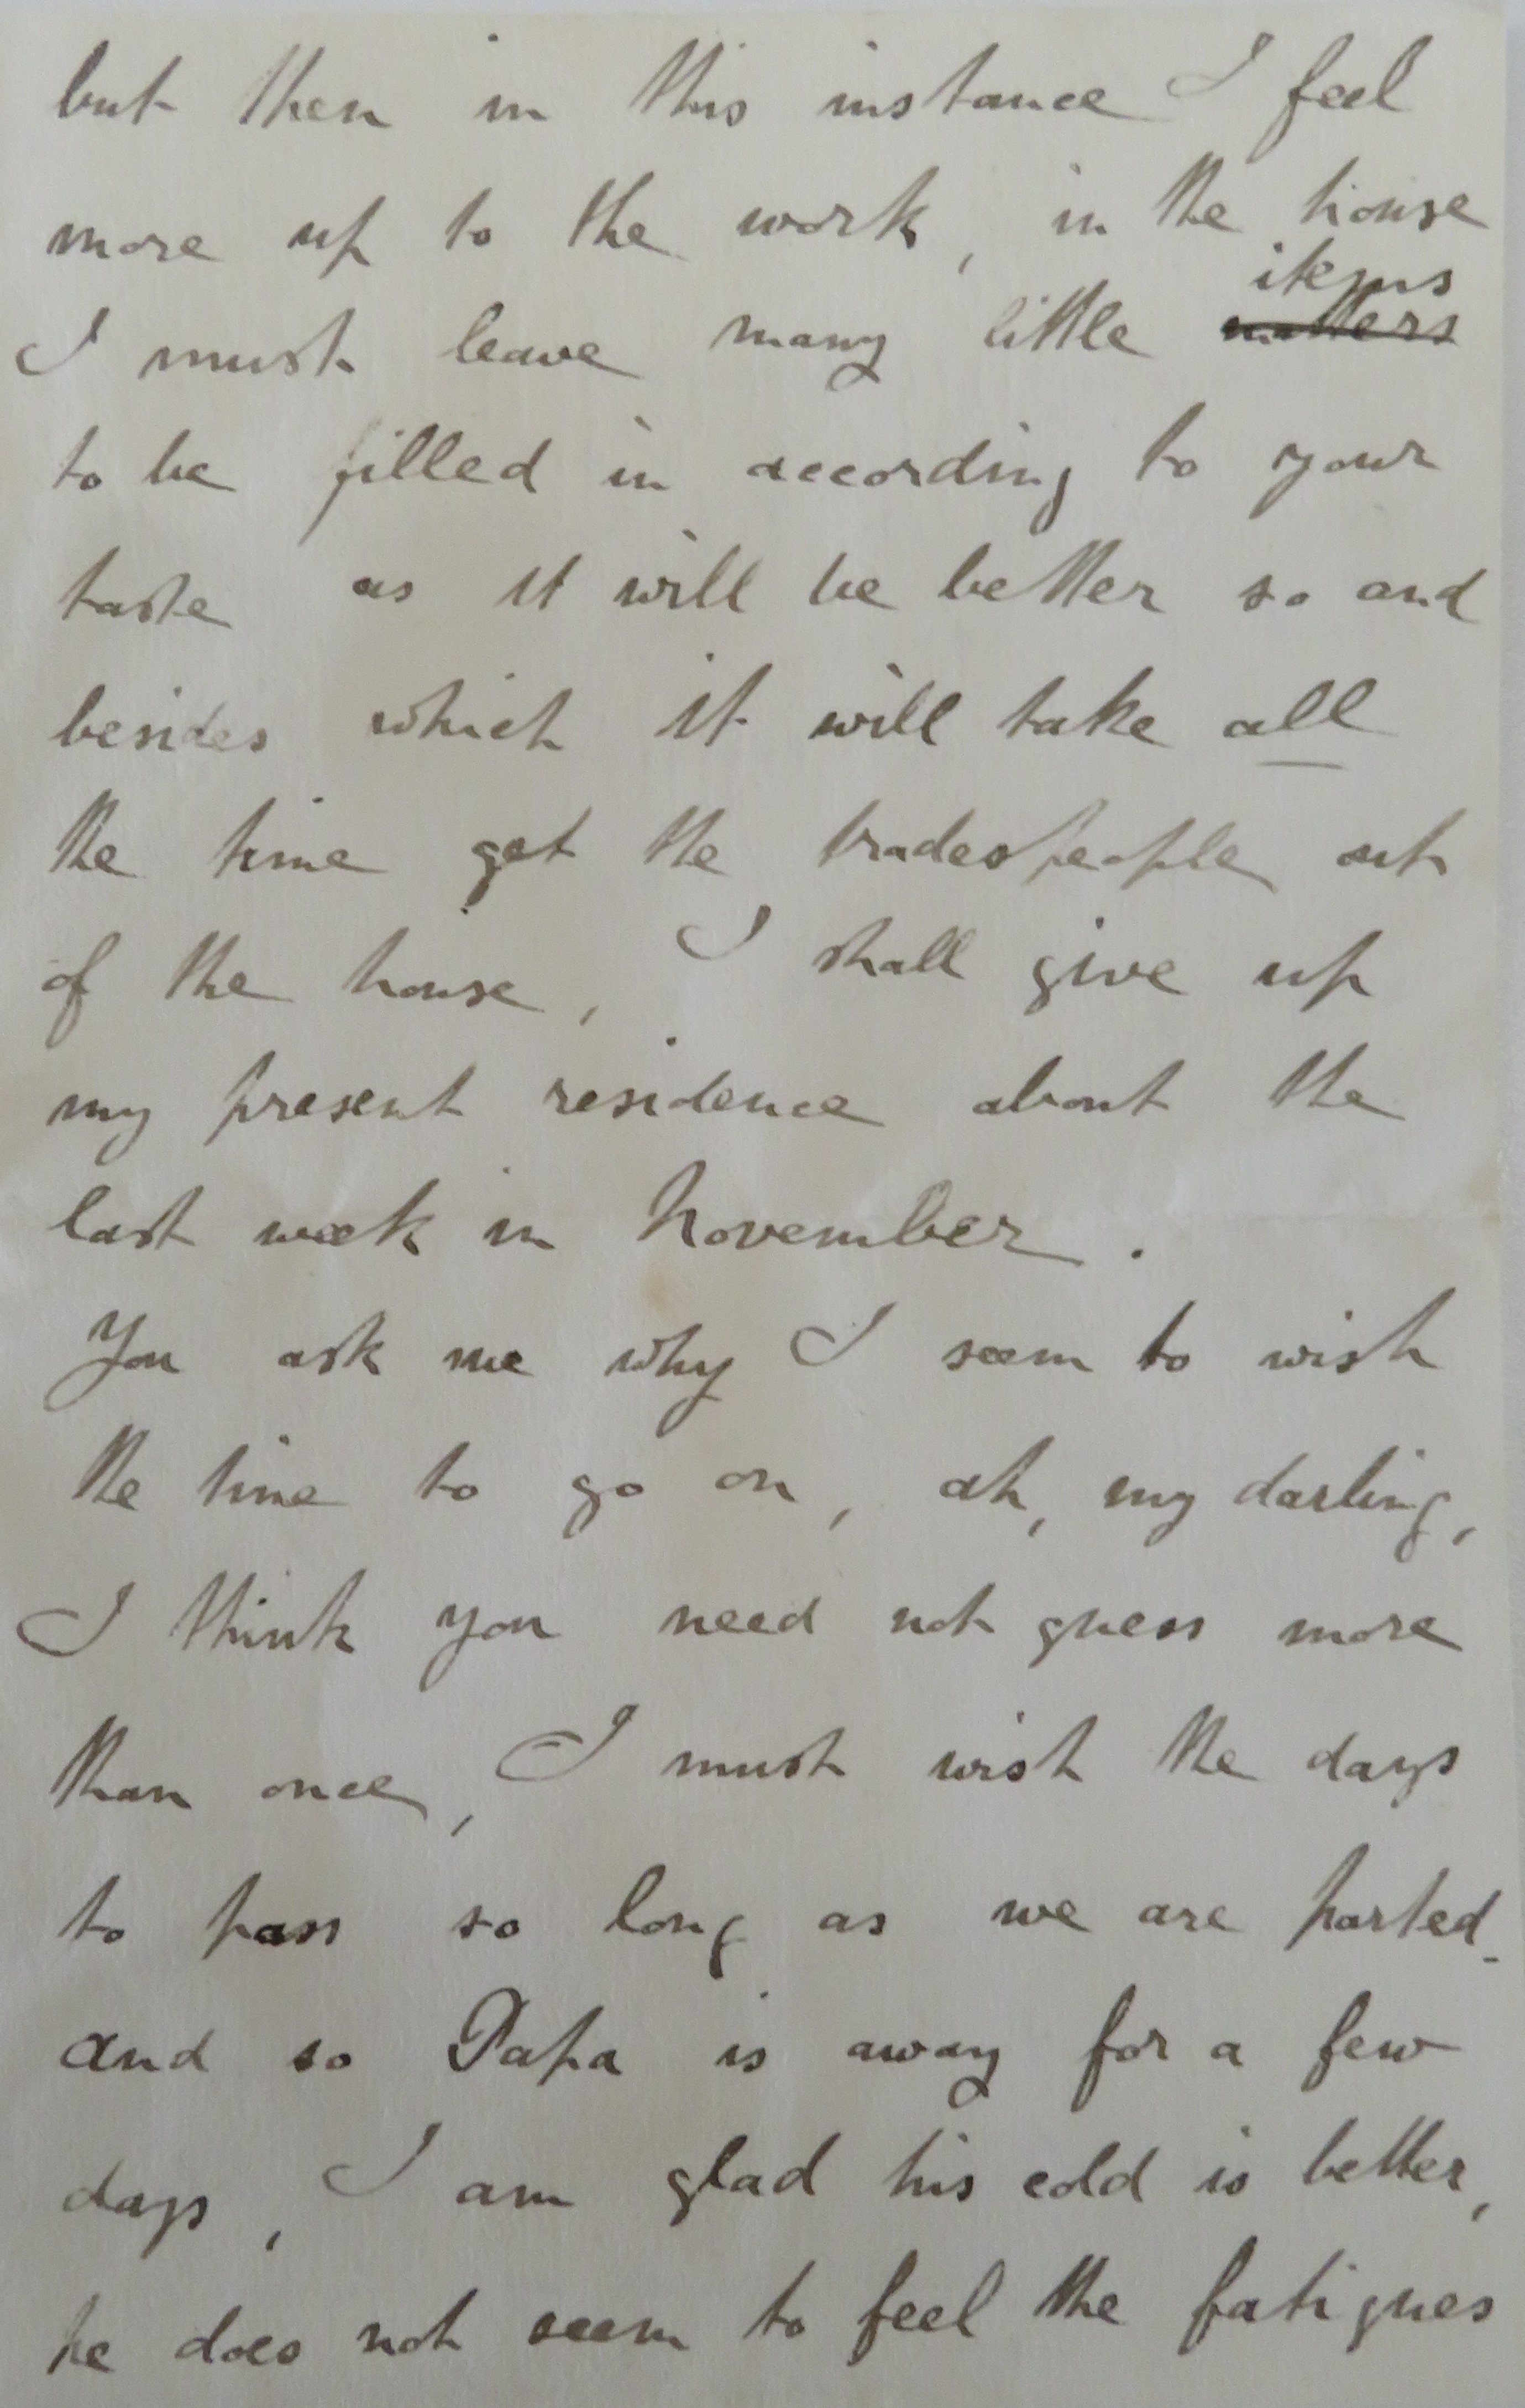 but then in this instance I feel
more up to the work, in the house
items
I must leave many little matters
to be filled in according to your
taste as it will be better so and
besides which it will take all
the time get the tradespeople out
of the house, I shall give up
my present residence about the
last week in November.
You ask me why I seem to wish
the time to go on, ah, my darling,
I think you need not guess more
than once, I must wish the days
to pass so long as we are parted.
and so Papa is away for a few
days, I am glad his cold is better,
he does not seem to feel the fatigues